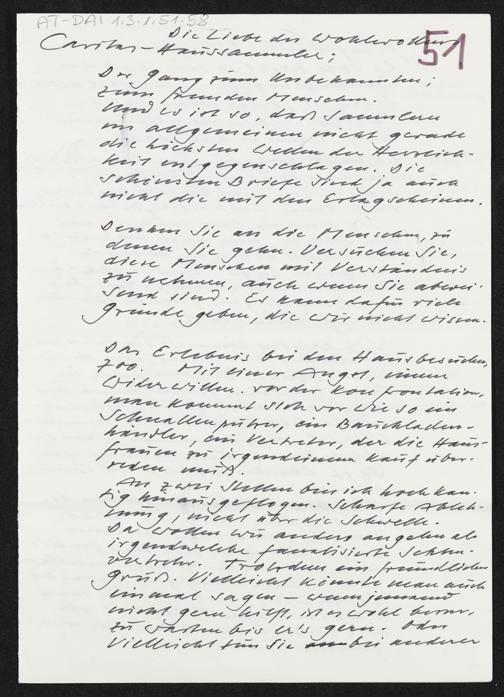 AT-DAI 1.3.1.51.58
51
Die Liebe des Wohlwollens
Caritas-Haussammler;
Der Gang zum Unbekannten;
zum fremden Menschen.
Und es ist so, daß Sammlern
im allgemeinen nicht gerade
die höchsten Wellen der Herzlich-
keit entgegenschlagen. Die
schönsten Briefe sind ja auch
nicht die mit den Erlagscheinen.
Denken Sie an die Menschen, zu
denen Sie gehn. Versuchen Sie,
diese Menschen mit Verständnis
zu nehmen, auch wenn Sie abwei-
send sind. Es kann dafür viele
Gründe geben, die wir nicht wissen.
Das Erlebnis bei den Hausbesuchen,
700. Mit einer Angst, einem
Widerwillen. vor der Konfrontation,
man kommt sich vor wie so ein
Schnallenputzer, ein Bauchladen-
händler, ein Vertreter, der die Haus-
frauen zu irgendeinem Kauf über-
reden muß.
An zwei Stellen bin ich hochkan-
tig hinausgeflogen. Scharfe Ableh-
nung, nicht über die Schwelle.
Da wollen wir anders umgehn als
irgendwelche fanatisierte Sekten-
vertreter. Trotzdem ein freundlicher
Gruß. Vielleicht könnte man auch
einmal sagen – wenn jemand
nicht gern hilft, ist es wohl besser,
zu warten bis er's gern. Oder
Vielleicht tun Sie bei anderer